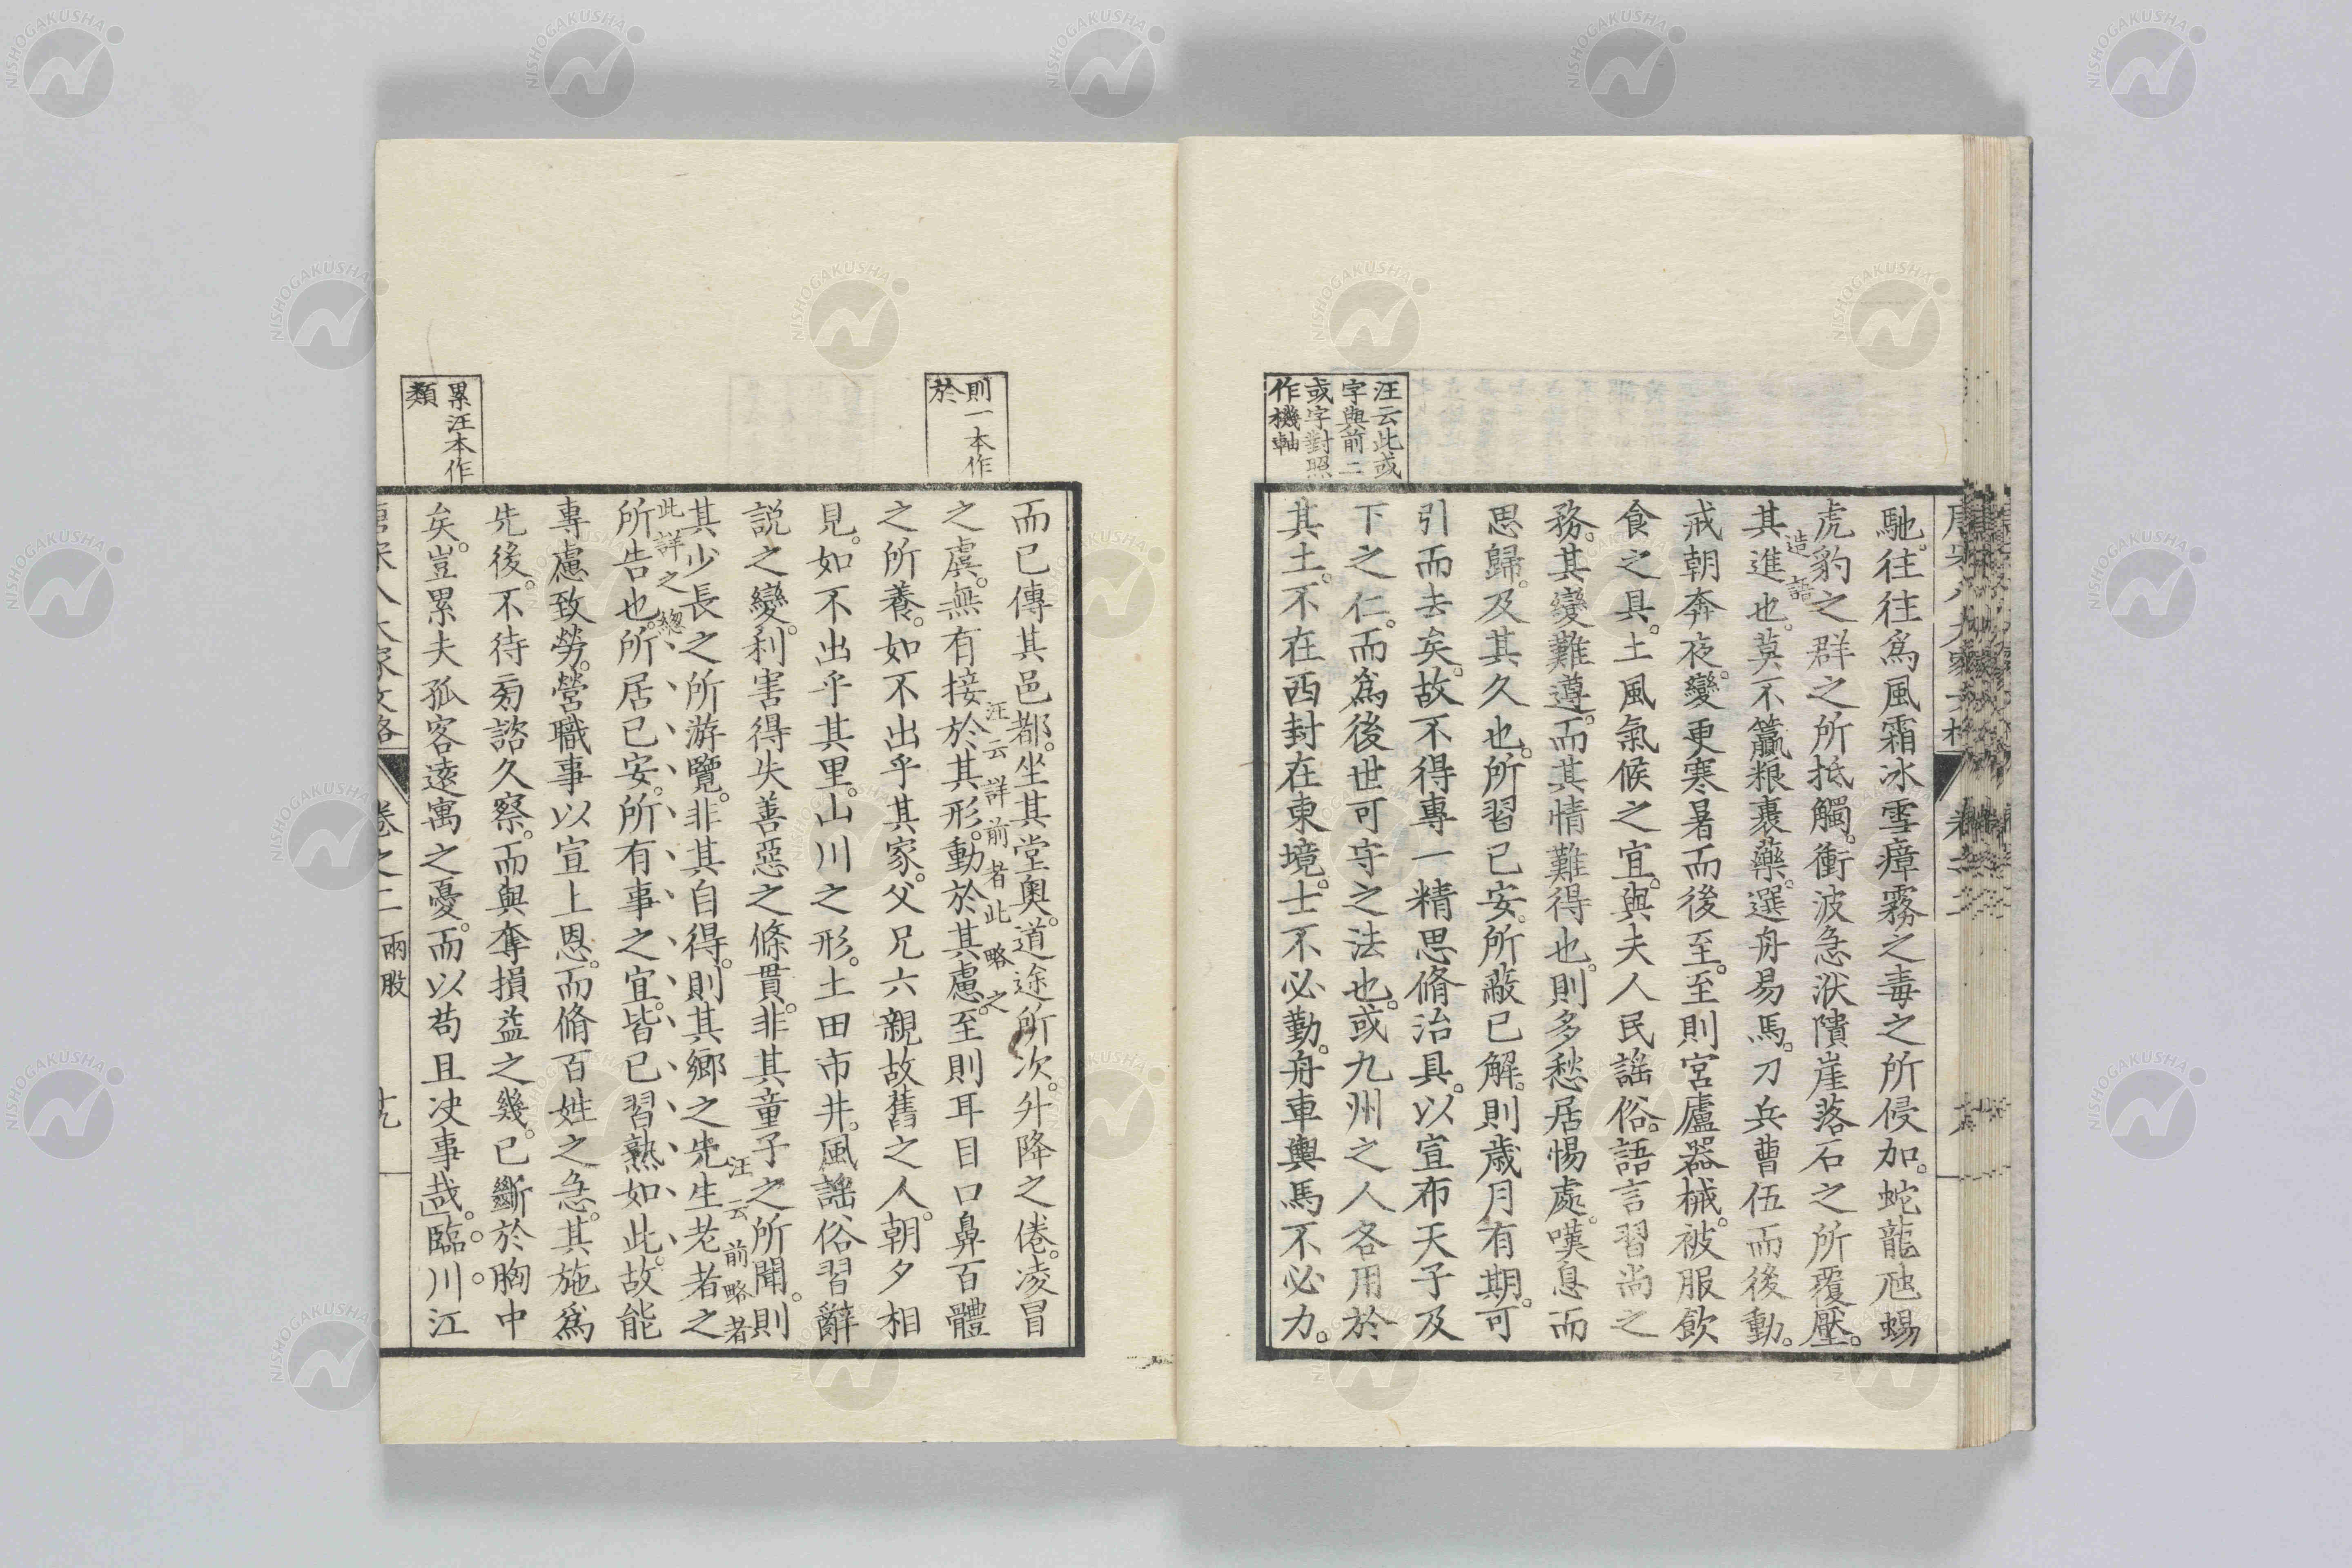 汪云此或
字與前二
或字對照
作機軸
馳。往往爲風霜冰雪瘴霧之毒之所侵加。蛇龍虺蜴
虎豹之群之所抵觸。衝波急洑隤崖落石之所覆壓。
造語
其進也。莫不籯粮裹藥。選舟易馬。刀兵曹伍而後動。
戒朝奔夜。變更寒暑而後至。至則宮廬器械。被服飲
食之具。土風氣候之宜。與夫人民謡俗。語言習尚之
務。其變難遵。而其情難得也。則多愁居惕處。嘆息而
思歸。及其久也。所習已安。所蔽已解。則歲月有期。可
引而去矣。故不得專一精思脩治具。以宣布天子及
下之仁。而爲後世可守之法也。或九州之人各用於
其土。不在西封在東境。士不必勤。舟車輿馬不必力。
則一本作
於
累汪本作
類
而已傳其邑都。坐其堂奧。道途所次。升降之倦。凌冒
之虞。無有接於其形。動於其慮。至則耳目口鼻百體
汪云詳前者此略之
之所養。如不出乎其家。父兄六親故舊之人。朝夕相
見。如不出乎其里。山川之形。土田市井。風謡俗習辭
説之變。利害得失善惡之條貫。非其童子之所聞。則
其少長之所游覽。非其自得。則其鄉之先生老者之
汪云前略者
此詳之總
所告也。所居已安。所有事之宜。皆已習熟如此。故能
專慮致勞。營職事以宣上恩。而脩百姓之急。其施爲
先後。不待旁諮久察。而與奪損益之幾。已斷於胸中
矣。豈累夫孤客遠寓之憂。而以苟且决事哉。」臨川江
唐宋八大家文格 卷之二 兩股